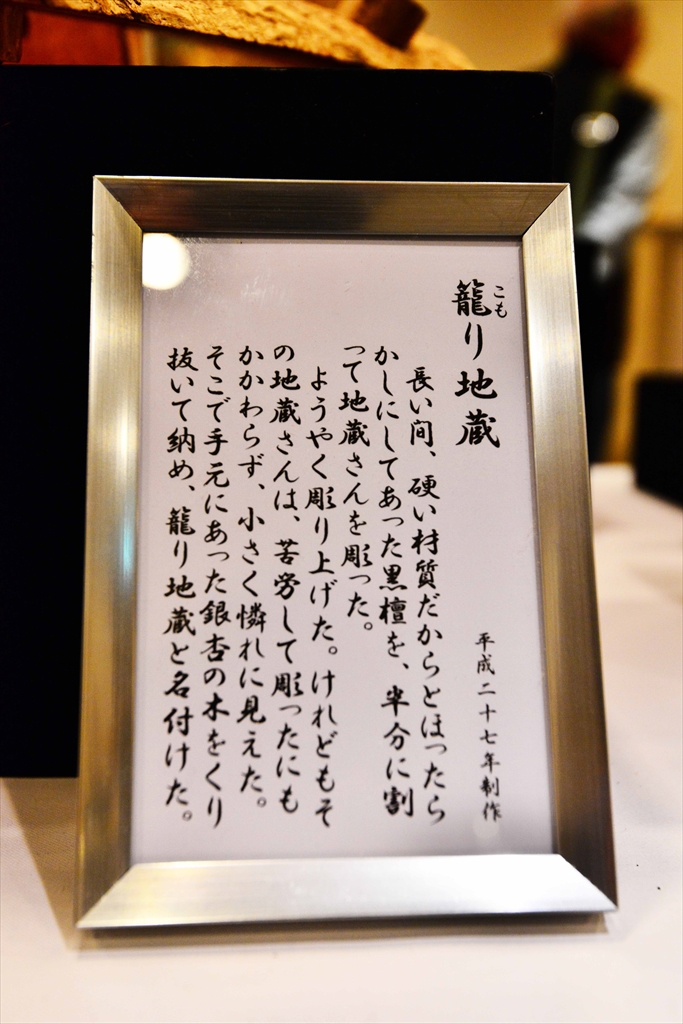 籠り地蔵
こも
平成二十七年制作
長い間、硬い材質だからとほったら
かしにしてあった黒檀を、半分に割
って地蔵さんを彫った。
ようやく彫り上げた。けれどもそ
の地蔵さんは、苦労して彫ったにも
かかわらず、小さく憐れに見えた。
そこで手元にあった銀杏の木をくり
抜いて納め、籠り地蔵と名付けた。